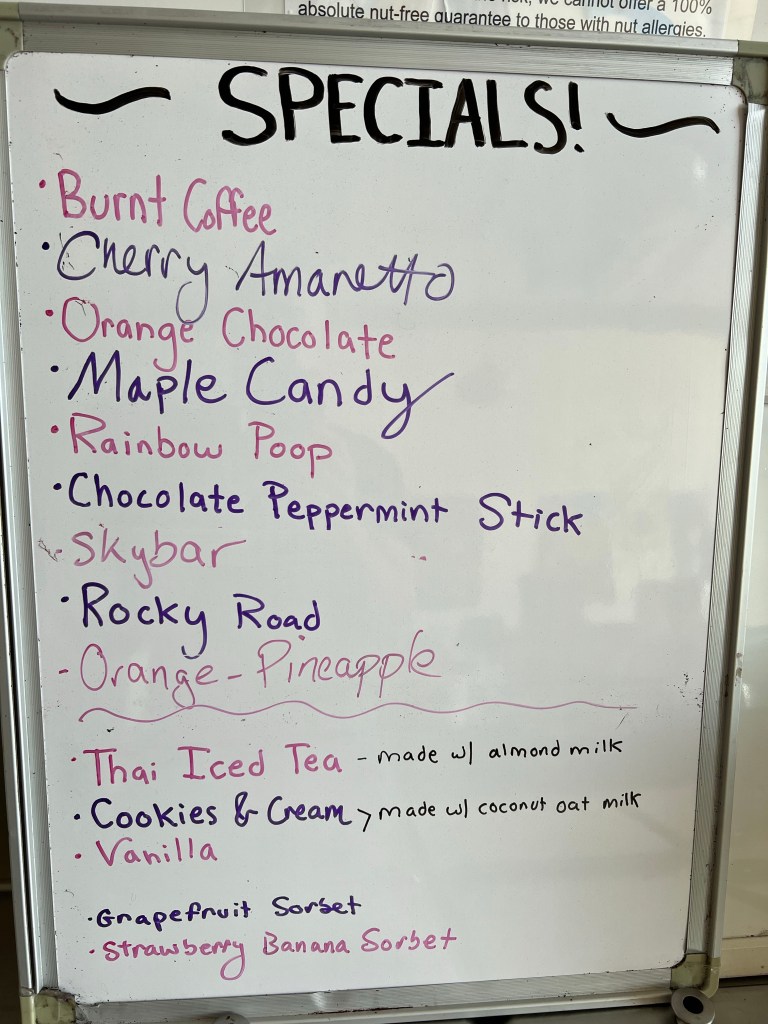 cannot offer a 100%
absolute nut-free guarantee to those with nut allergies.
SPECIALS!
• Burnt Coffee
• Cherry Amaretto
• Orange Chocolate
• Maple Candy
• Rainbow Poop
• Chocolate Peppermint Stick
- Skybar
• Rocky Road
- Orange - Pineapple
• Thai Iced Tea - made w/ almond milk
• Cookies & Cream > made w/ coconut oat milk
• Vanilla
• Grapefruit Sorbet
• Strawberry Banana Sorbet